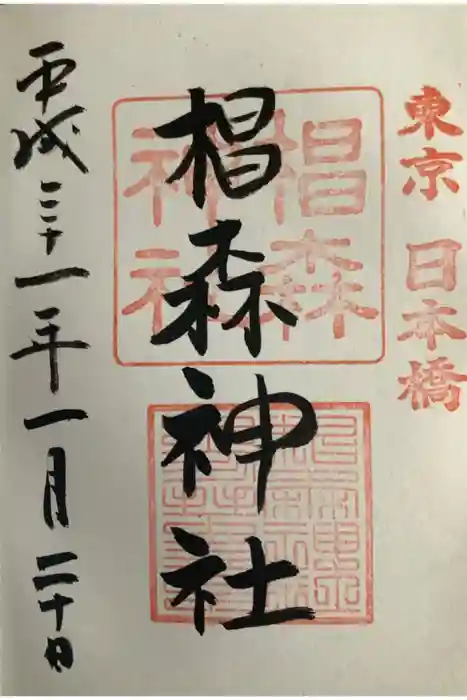 東京 日本橋
椙森神社
椙森
神社
平成三十一年一月二十日